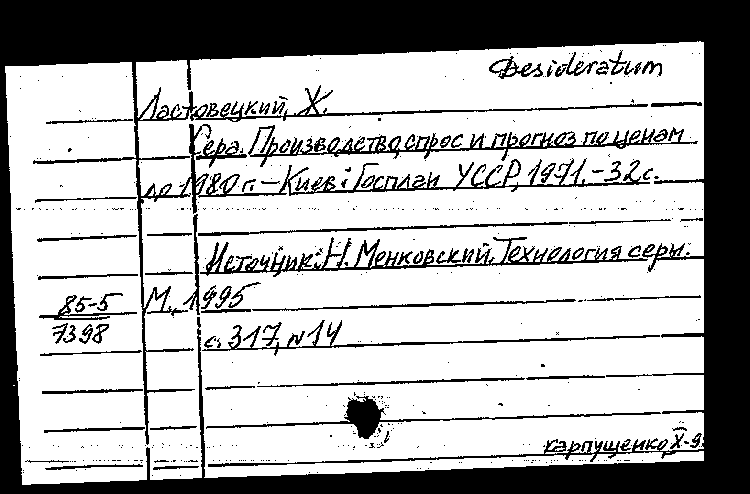 Desideratum
Ластовецкий, Х.
Сера. Производство, спрос и прогноз по ценам
до 1980 г. – Киев: Госплан УССР, 1971. – 32 с.
Источник: Н. Менковский. Технология серы.
85-5 М., 1995
7398 с. 317, n 14
Карпущенко, X-9